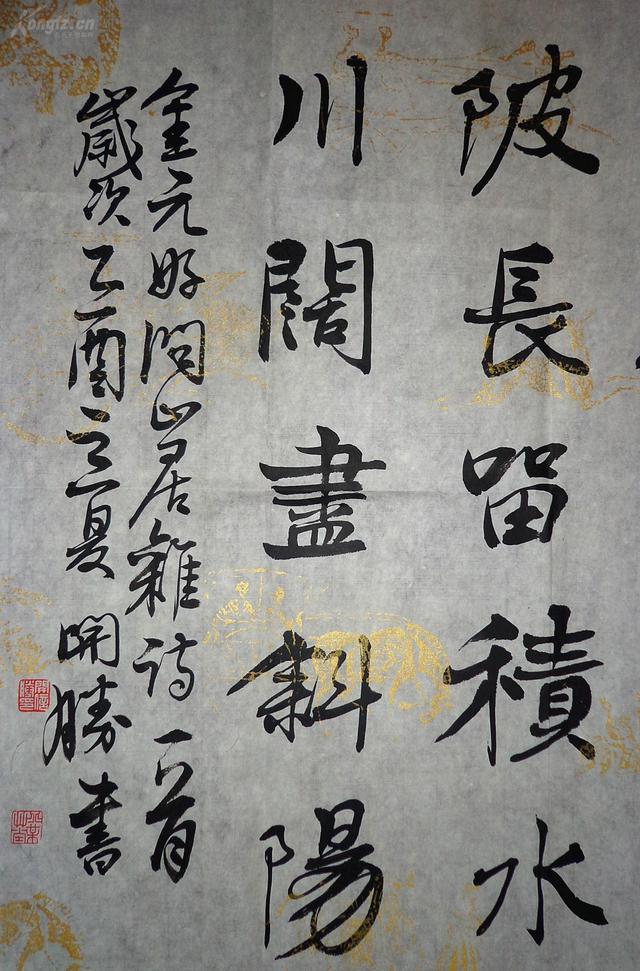 陂長留積水
川闊盡斜陽
金元好問山居雜诗一首
歲次乙酉立夏開勝書
Kongfz.cn